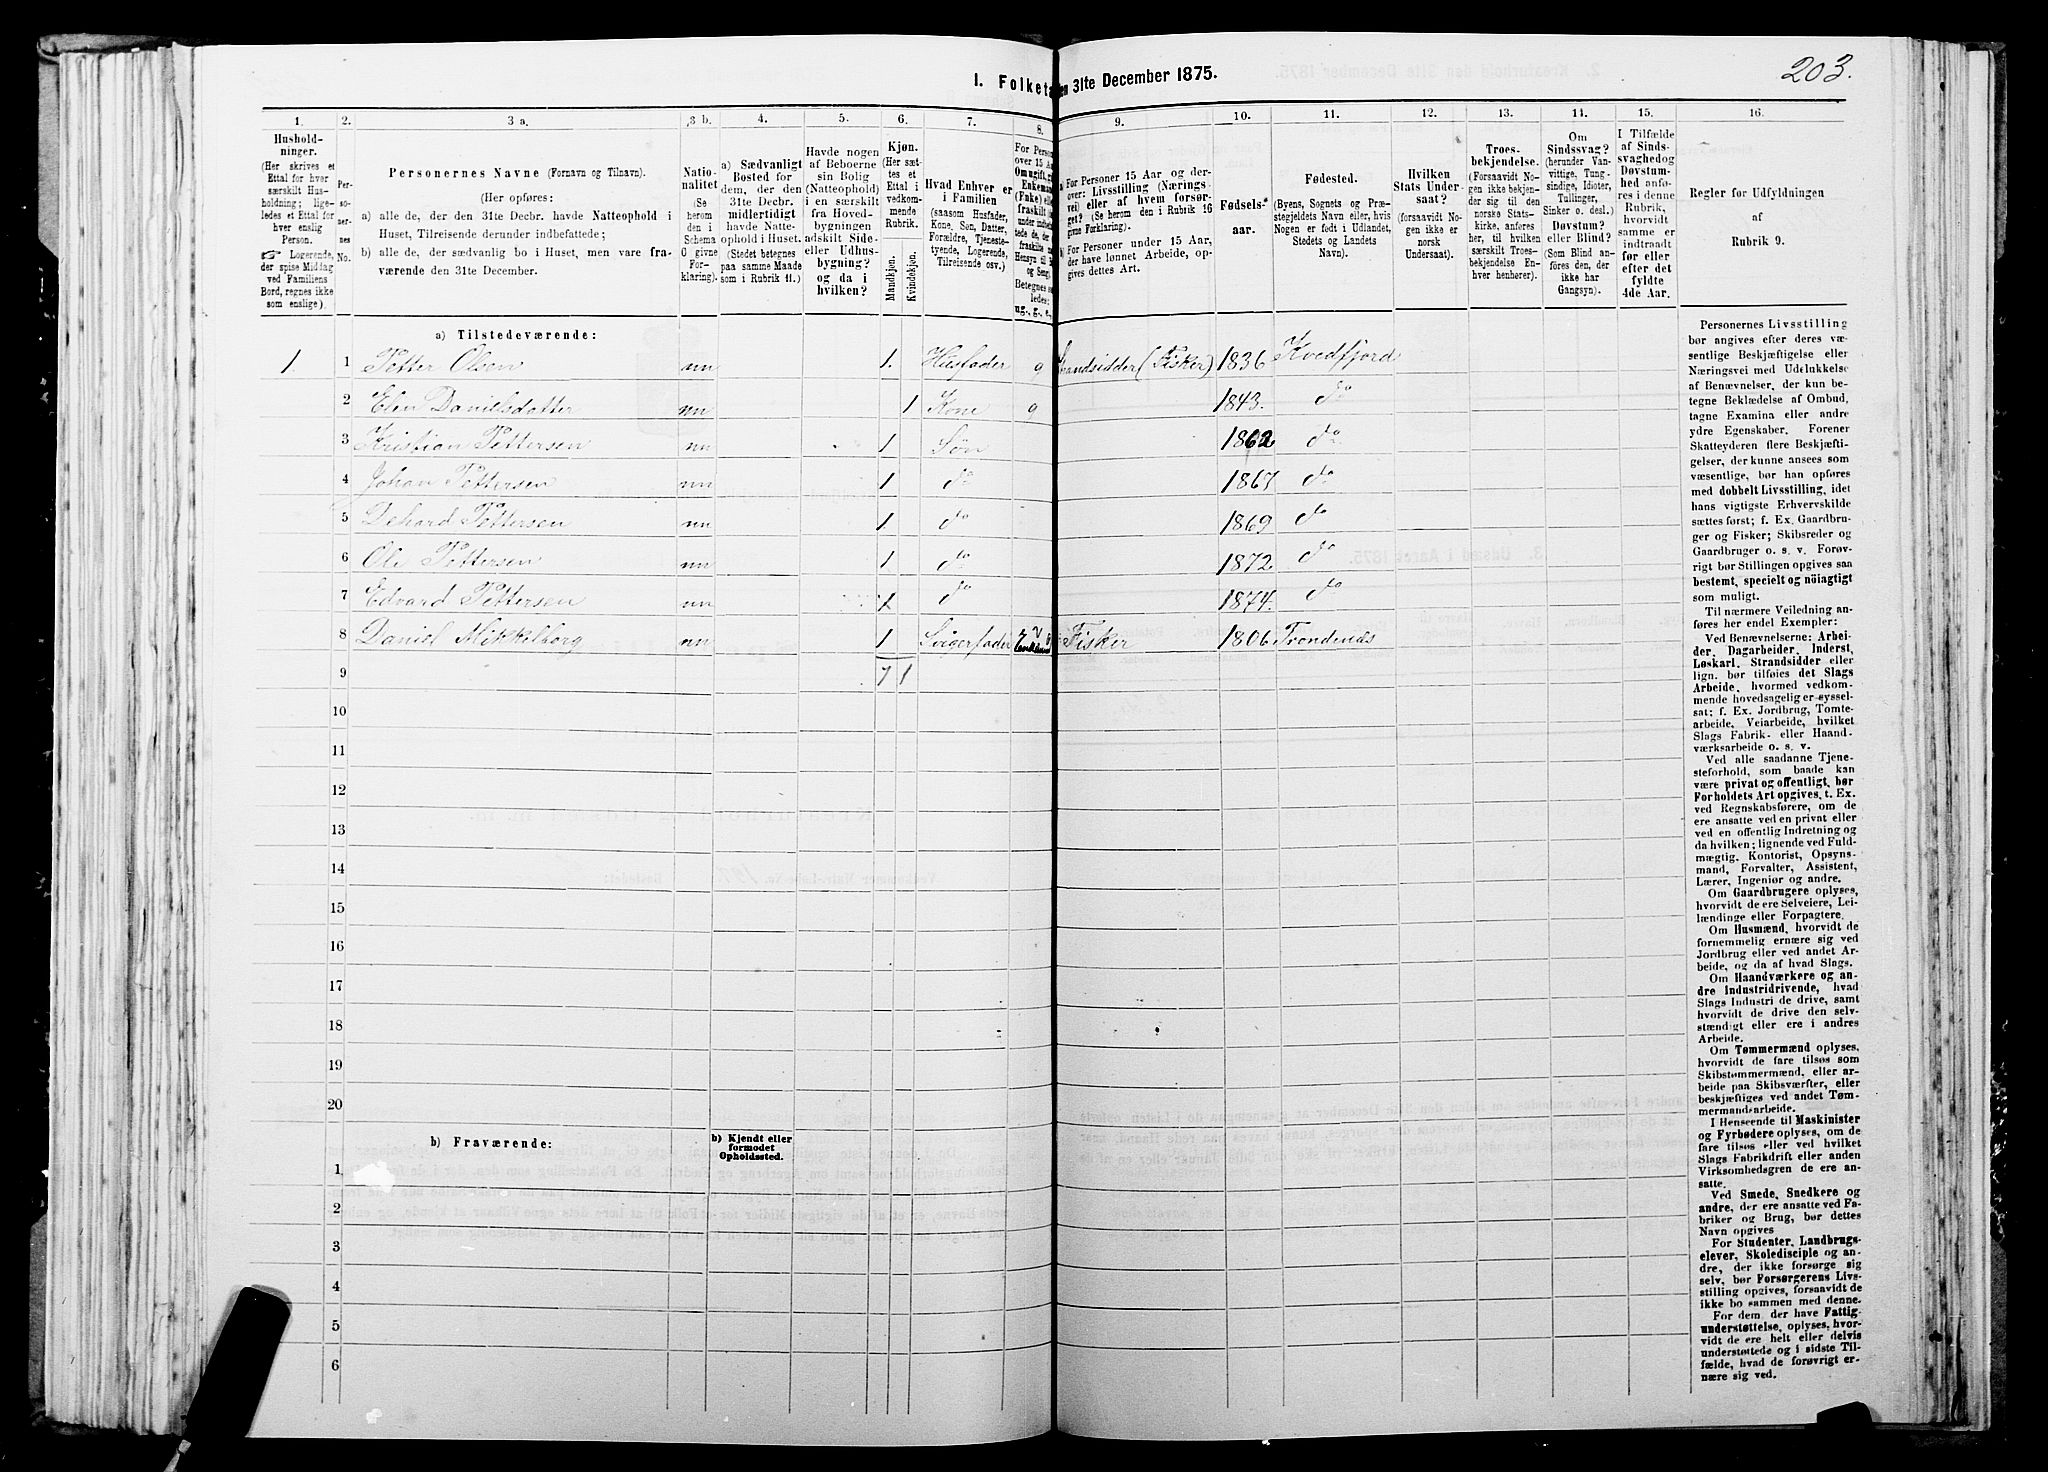 203.
I. Folketæ en 31te December 1875.
1. 2. 3 a. 3 b. 4. 5. 6. 7. 8. 9. 10. 11. 12. 13. 14. 15. 16.
Hushold-
ninger.
(Her skrives et
Ettal for hver
særskilt Hus-
holdning; lige-
ledes et Ettal for
hver enslig
Person.
☞ Logerende,
der spise Middag
ved Familiens
Bord, regnes ikke
som enslige).
Per-
so-
ner-
nes
No.
Personernes Navne (Fornavn og Tilnavn).
(Her opføres:
a) alle de, der den 31te Decbr. havde Natteophold i
Huset, Tilreisende derunder indbefattede;
b) alle de, der sædvanlig bo i Huset, men vare fra-
værende den 31te December.
Natio-
nalitet
(Se
herom
den i
Schema
0 givne
For-
klaring).
a) Sædvanligt
Bosted for
dem, der den
31te Decbr.
midlertidigt
havde Natte-
ophold i Huset.
(Stedet betegnes
paa samme Maade
som i Rubrik 11.)
Havde nogen
af Beboerne
sin Bolig
(Natteophold)
i en særskilt
fra Hoved-
bygningen
adskilt Side-
eller Udhus-
bygning?
og da i
hvilken?
Kjøn.
(Her sæt-
tes et
Ettal i
vedkom-
mende
Rubrik.
Mandkjøn.
Kvindekjøn.
Hvad Enhver er
i Familien
(saasom Husfader,
Kone, Søn, Datter,
Forældre, Tjeneste-
tyende, Logerende,
Tilreisende osv.)
For Person
over 15 Aar
Om ugift, gi
Enkeman
(Enke) elle
fraskilt
Betegnes s
ledes:
ug., g., e.,
a) For Personer 15 Aar og der-
over: Livsstilling (Nærings-
vei) eller af hvem forsør-
get? (Se herom den i Rubrik 16
givne Forklaring).
b) For Personer under 15 Aar,
der have lønnet Arbeide, op-
gives dettes Art.
Fødsels-
aar.
Fødested.
(Byens, Sognets og Præ-
stegjeldets Navn eller, hvis
Nogen er født i Udlandet,
Stedets og Landets
Navn).
Hvilken
Stats Under-
saat?
(forsaavidt No-
gen ikke er
norsk
Undersaat).
Troes-
bekjendelse.
(Forsaavidt No-
gen ikke bekjen-
der sig til den
norske Stats-
kirke, anføres
her, til hvilken
særskilt Troes-
bekjendelse En-
hver henhører).
Om
Sindssvag?
(herunder Van-
vittige, Tung-
sindige, Idioter,
Tullinger,
Sinker o. desl.)
Døvstum?
eller Blind?
(Som Blind an-
føres den, der
ikke har
Gangsyn).
I Tilfælde
af Sinds-
svaghedog
Døvstum-
hed anfø-
res i denne
Rubrik,
hvorvidt
samme er
indtraadt
før eller
efter det
fyldte
4de Aar.
Regler for Udfyldningen
af
Rubrik 9.
a) Tilstedeværende:
1. 1 Petter Olsen nn 1. Husfader g Strandsidder (Fisker) 1836 Kvedfjord
2 Elen Danielsdatter nn 1 Kone g 1843. do
3 Kristian Pettersen nn 1 Søn 1862 do
4 Johan Pettersen nn 1 do 1867 do
5 Dehard Pettersen nn 1. do 1869 do
6 Ole Pettersen nn 1 do 1872 do
7 Edvard Pettersen nn 1 do 1874. do
8 Daniel Mikkelborg nn 1 Svigerfader Fisker 1806. Trondenæs
9 7 1
10
11
12
13
14
15
16
17
18
19
20
b) Fraværende:
b) Kjendt eller
formodet
Opholdssted.
1
2
3
4
5
6
Personernes Livsstilling
bør angives efter deres væ-
sentlige Beskjæftigelse eller
Næringsvei med Udelukkelse
af Benævnelser, der kun be-
tegne Beklædelse af Ombud,
tagne Examina eller andre
ydre Egenskaber. Forener
Skatteyderen flere Beskjæfti-
gelser, der kunne ansees som
væsentlige, bør han opføres
med dobbelt Livsstilling, idet
hans vigtigste Erhvervskilde
sættes først; f. Ex. Gaardbru-
ger og Fisker; Skibsreder og
Gaardbruger o. s. v. Forøv-
rigt bør Stillingen opgives saa
bestemt, specielt og nöiagtigt
som muligt.
Til nærmere Veiledning an-
føres her endel Exempler:
Ved Benævnelserne: Arbei-
der, Dagarbeider, Inderst,
Løskarl, Strandsidder eller
lign. bør tilføies det Slags
Arbeide, hvormed vedkom-
mende hovedsagelig er syssel-
sat; f. Ex. Jordbrug, Tomte-
arbeide, Veiarbeide, hvilket
Slags Fabrik- eller Haand-
værksarbeide o. s. v.
Ved alle saadanne Tjene-
steforhold, som baade kan
være privat og offentligt, bør
Forholdets Art opgives, t. Ex.
ved Regnskabsførere, om de
ere ansatte ved en privat eller
ved en offentlig Indretning og
da hvilken; lignende ved Fuld-
mægtig, Kontorist, Opsyns-
mand, Forvalter, Assistent,
Lærer, Ingeniør og andre.
Om Gaardbrugere oplyses,
hvorvidt de ere Selveiere, Lei-
lændinge eller Forpagtere.
Om Husmænd, hvorvidt de
fornemmelig ernære sig ved
Jordbrug eller ved andet Ar-
beide, og da af hvad Slags.
Om Haandværkere og an-
dre Industridrivende, hvad
Slags Industri de drive, samt
hvorvidt de drive den selv-
stændigt eller ere i andres
Arbeide.
Om Tømmermænd oplyses,
hvorvidt de fare tilsøs som
Skibstømmermænd, eller ar-
beide paa Skibsværfter, eller
beskjæftiges ved andet Tøm-
mermandsarbeide.
I Henseende til Maskinister
og Fyrbødere oplyses, om de
fare tilsøs eller ved hvilket
Slags Fabrikdrift eller anden
Virksomhedsgren de ere an-
satte.
Ved Smede, Snedkere og
andre, der ere ansatte ved Fa-
briker og Brug, bør dettes
Navn opgives
For Studenter, Landbrugs-
elever, Skoledisciple og an-
dre, der ikke forsørge sig
selv, bør Forsørgerens Livs-
stilling opgives, forsaavidt de
ikke bo sammen med denne.
For dem, der have Fattig-
understøttelse, oplyses, hvor-
vidt de ere helt eller delvis
understøttede og i sidste Til-
fælde, hvad de forøvrigt er-
nære sig ved.